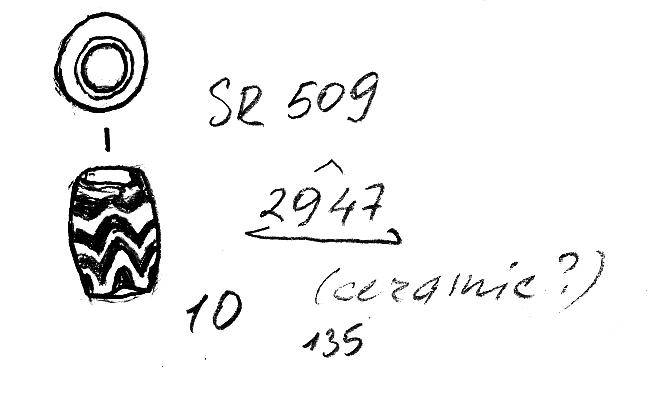 SR 509
2947
(ceramic?)
10
135